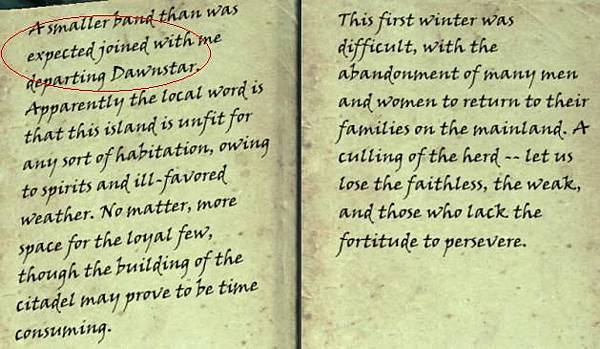 A smaller band than was
expected joined with me
departing Dawnstar.
Apparently the local word is
that this island is unfit for
any sort of habitation, owing
to spirits and ill-favored
weather. No matter, more
space for the loyal few,
though the building of the
citadel may prove to be time
consuming.
This first winter was
difficult, with the
abandonment of many men
and women to return to their
families on the mainland. A
culling of the herd -- let us
lose the faithless, the weak,
and those who lack the
fortitude to persevere.